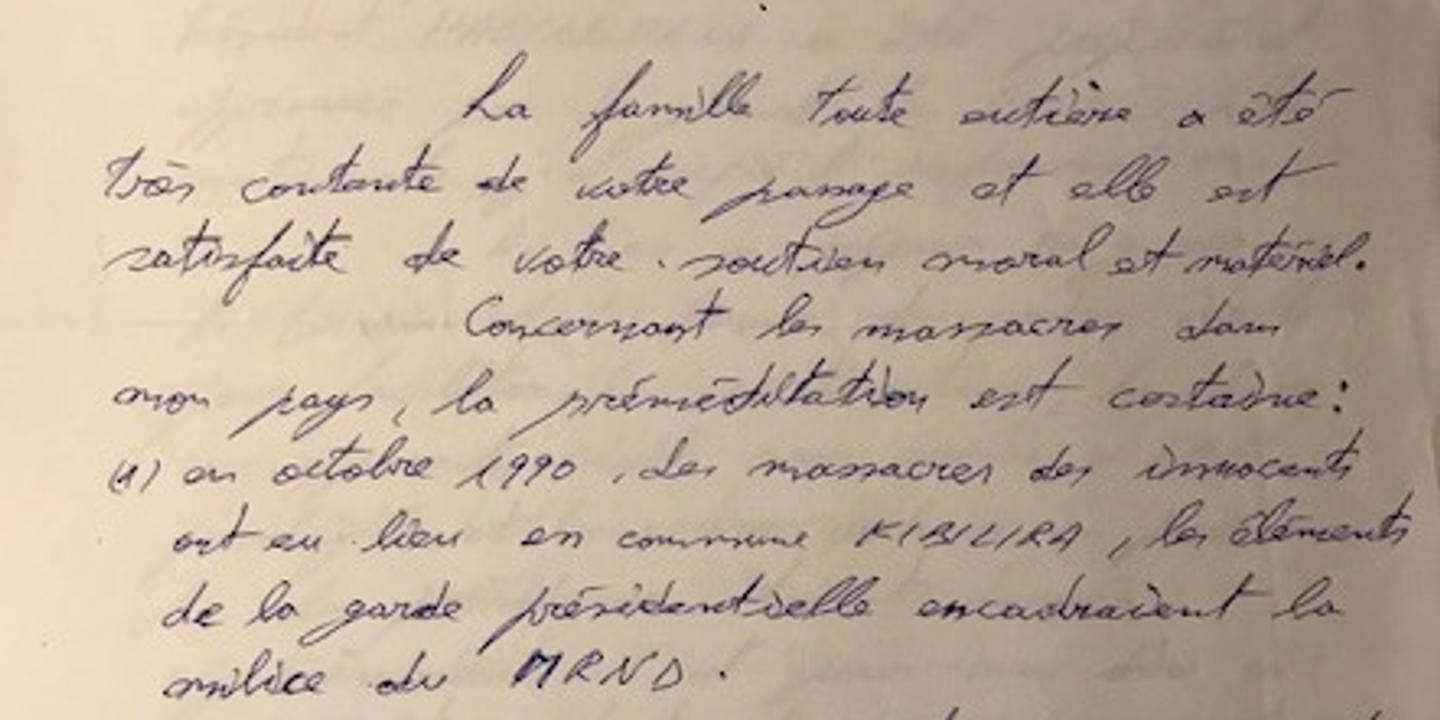 La famille toute entière a été
très contente de votre passage et elle est
satisfaite de votre soutien moral et matériel.
Concernant les massacres dans
mon pays, la préméditation est certaine :
(1) en octobre 1990, des massacres des innocents
ont eu lieu en commune KIBILIRA, les éléments
de la garde présidentielle encadraient la
milice du MRND.